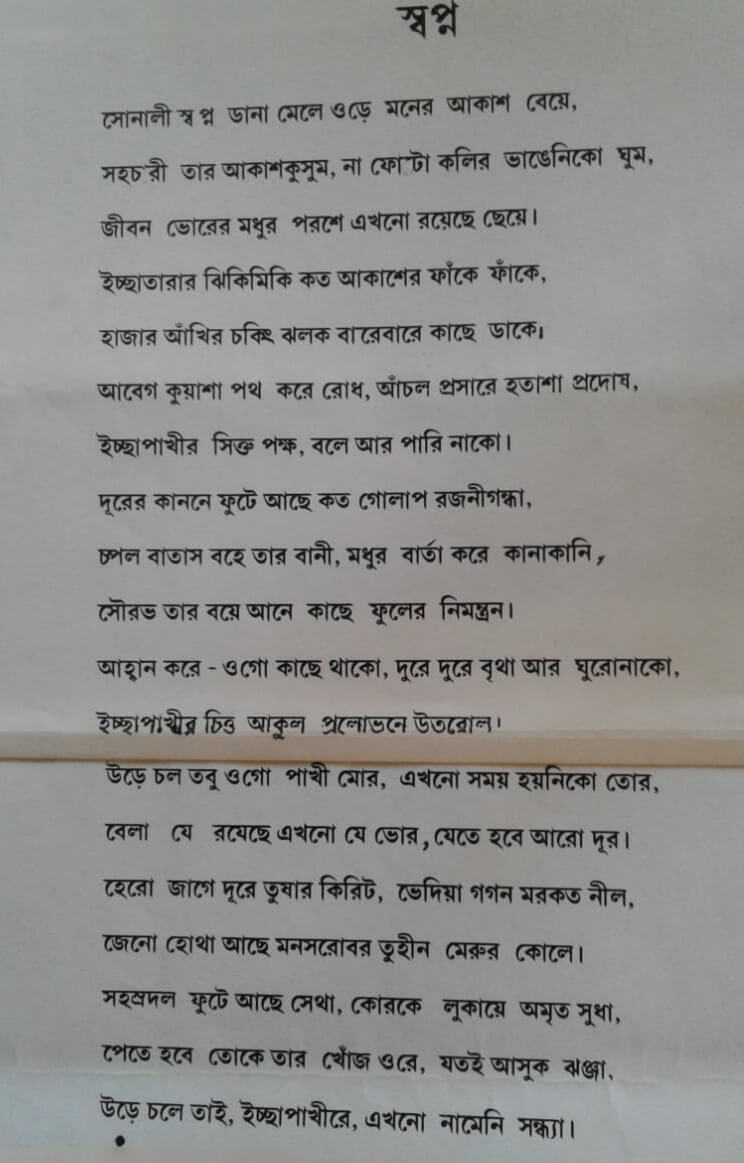 স্বপ্ন
সোনালী স্বপ্ন ডানা মেলে ওড়ে মনের আকাশ বেয়ে,
সহচরী তার আকাশকুসুম, না ফোটা কলির ভাঙেনিকো ঘুম,
জীবন ভোরের মধুর পরশে এখনো রয়েছে ছেয়ে।
ইচ্ছাতারার ঝিকিমিকি কত আকাশের ফাঁকে ফাঁকে,
হাজার আঁখির চকিৎ ঝলক বারেবারে কাছে ডাকে।
আবেগ কুয়াশা পথ করে রোধ, আঁচল প্রসারে হতাশা প্রদোষ,
ইচ্ছাপাখীর সিক্ত পক্ষ, বলে আর পারি নাকো।
দূরের কাননে ফুটে আছে কত গোলাপ রজনীগন্ধা,
চপল বাতাস বহে তার বানী, মধুর বার্তা করে কানাকানি,
সৌরভ তার বয়ে আনে কাছে ফুলের নিমন্ত্রন।
আহ্বান করে - ওগো কাছে থাকো, দূরে দূরে বৃথা আর ঘুরোনাকো,
ইচ্ছাপাখীর চিত্ত আকুল প্রলোভনে উতরোল।
উড়ে চল তবু ওগো পাখী মোর, এখনো সময় হয়নিকো তোর,
বেলা যে রয়েছে এখনো যে ভোর, যেতে হবে আরো দূর।
হেরো জাগে দূরে তুষার কিরিট, ভেদিয়া গগন মরকত নীল,
জেনো হোথা আছে মনসরোবর তুহীন মেরুর কোলে।
সহস্রদল ফুটে আছে সেথা, কোরকে লুকায়ে অমৃত সুধা,
পেতে হবে তোকে তার খোঁজ ওরে, যতই আসুক ঝঞ্ঝা,
উড়ে চলে তাই, ইচ্ছাপাখীরে, এখনো নামেনি সন্ধ্যা।